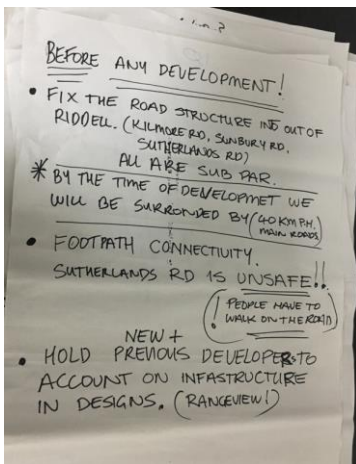 BEFORE ANY DEVELOPMENT!
• FIX THE ROAD STRUCTURE IN & OUT OF
RIDDELL. (KILMORE RD, SUNBURY RD,
SUTHERLANDS RD)
ALL ARE SUB PAR.
* BY THE TIME OF DEVELOPMET WE
WILL BE SURRONDED BY (40KMP.H.
MAIN ROADS)
• FOOTPATH CONNECTIVITY.
SUTHERLANDS RD IS UNSAFE!!
(! PEOPLE HAVE TO
WALK ON THE ROAD)
NEW +
• HOLD PREVIOUS DEVELOPERS TO
ACCOUNT ON INFASTRUCTURE
IN DESIGNS. (RANGEVIEW!)